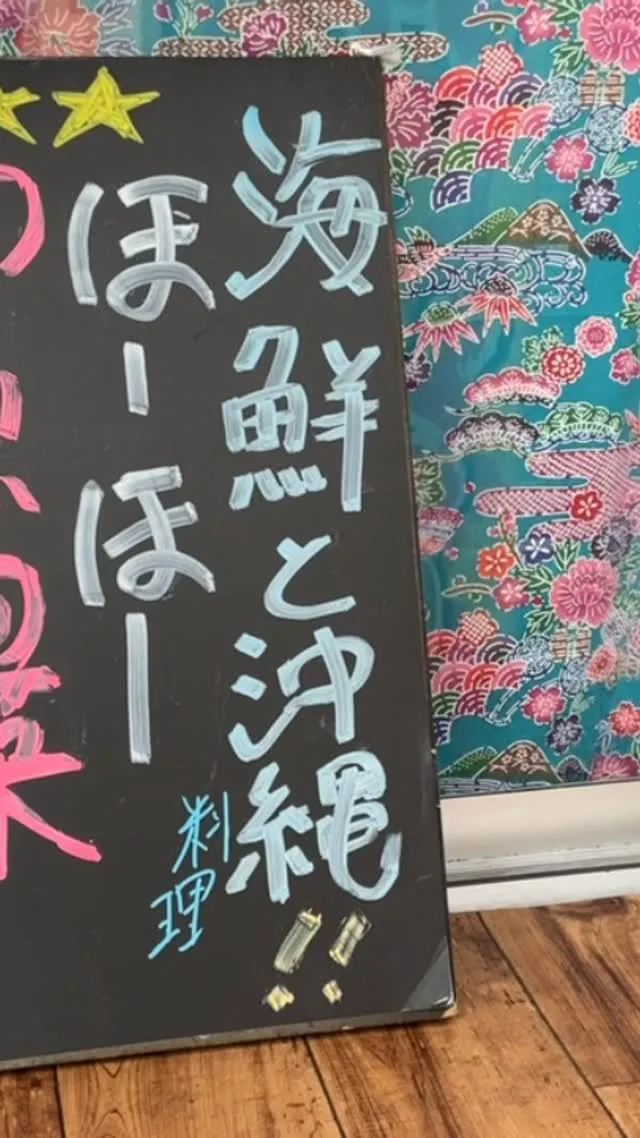 海鮮と沖縄
料理
!!
ほーほー